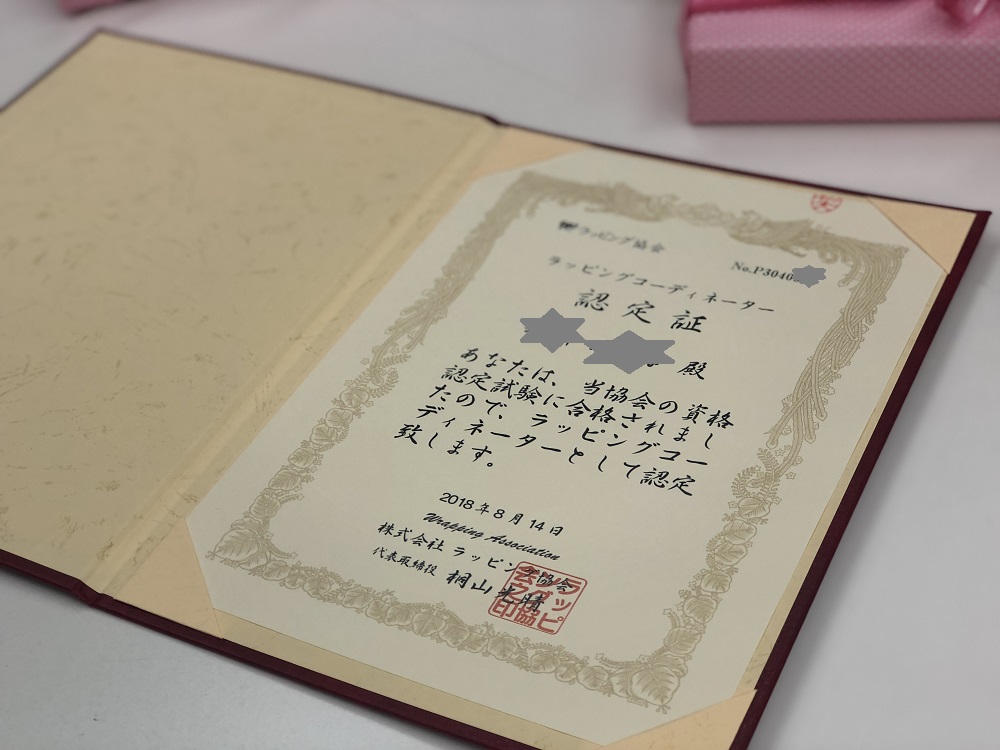 ラッピング協会
No.P3046
ラッピングコーディネーター
認定証
殿
あなたは、当協会の資格
認定試験に合格されまし
たので、ラッピングコー
ディネーターとして認定
致します。
2018年8月14日
Wrapping Association
株式会社 ラッピング協会
代表取締役 桐山 光晴
ラッピング協会之印